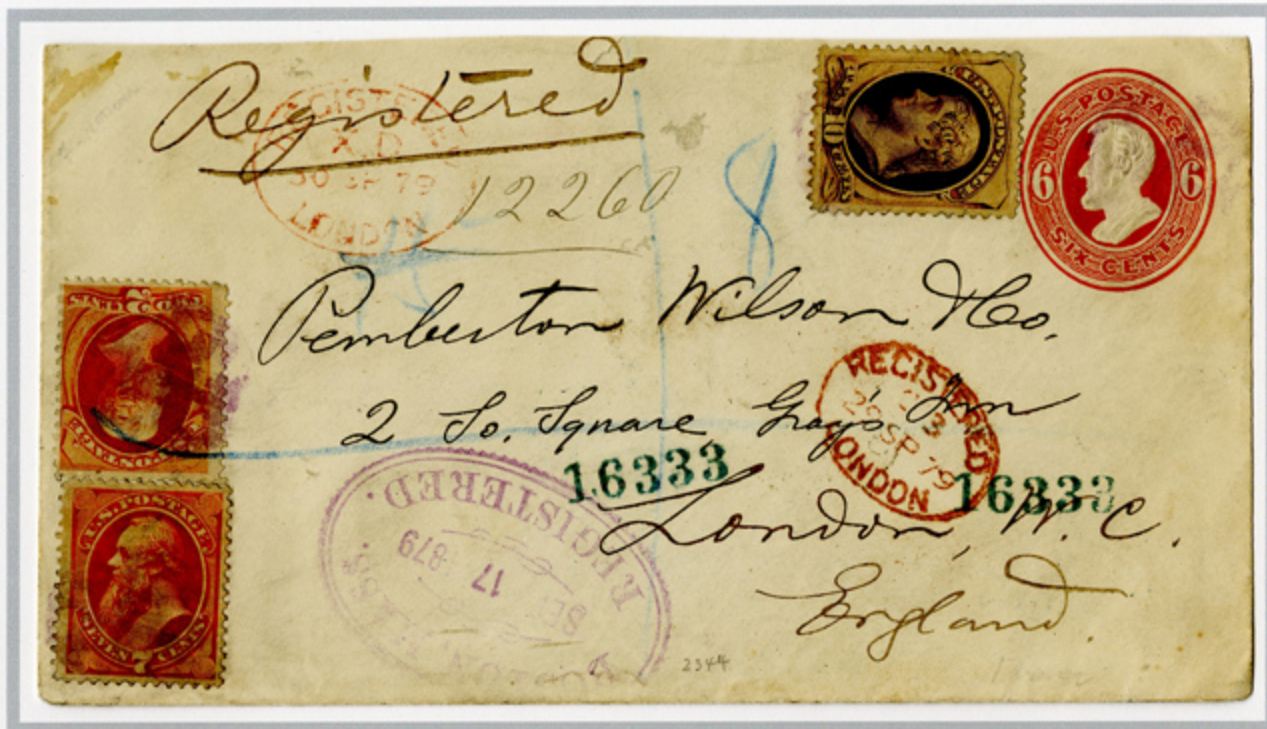 Registered
REGISTERED
X.D
30 SP 79
LONDON
12260
8
U.S. POSTAGE
6 6
SIX CENTS
Pemberton Wilson & Co.
2 So. Square Gray's Inn
REGISTERED
29 SP 79
LONDON
16333
16333
London, W. C.
England.
REGISTERED.
17 1879
U.S. POSTAGE
SEVEN 7 CENTS
2344